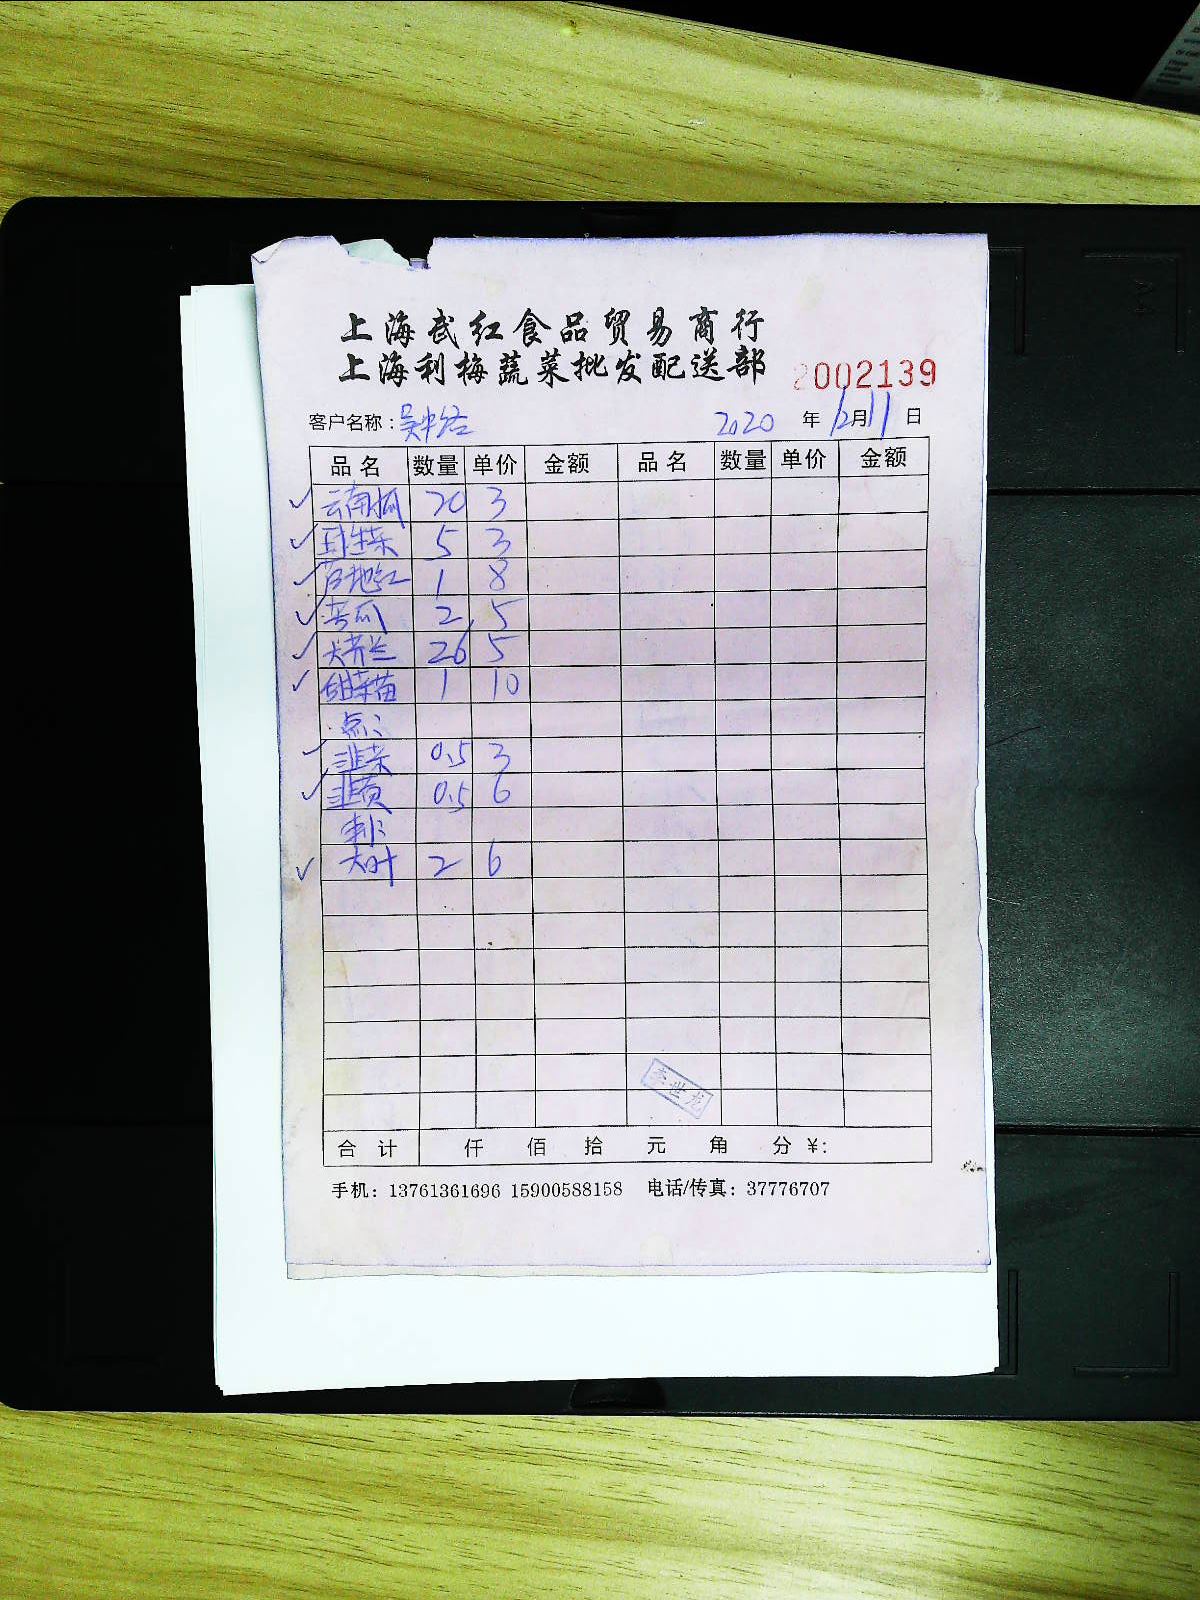 上海武红食品贸易商行
上海利梅蔬菜批发配送部
2002139
客户名称: 吴中路 2020 年 12月 11 日
品名 数量 单价 金额 品名 数量 单价 金额
云南 20 3
生菜 5 3
地红 1 8
苦瓜 2 5
大芥兰 26 5
甜菜苗 1 10
点:
韭菜 0.5 3
韭黄 0.5 6
大叶 2 6
李世龙
合计 仟 佰 拾 元 角 分 ¥:
手机: 13761361696 15900588158 电话/传真: 37776707